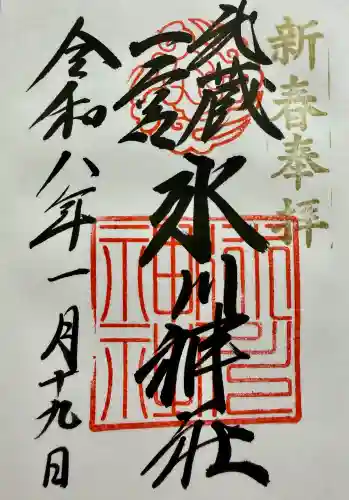 新春奉拝
武蔵
一宮
氷川神社
令和八年一月十九日
氷川神社